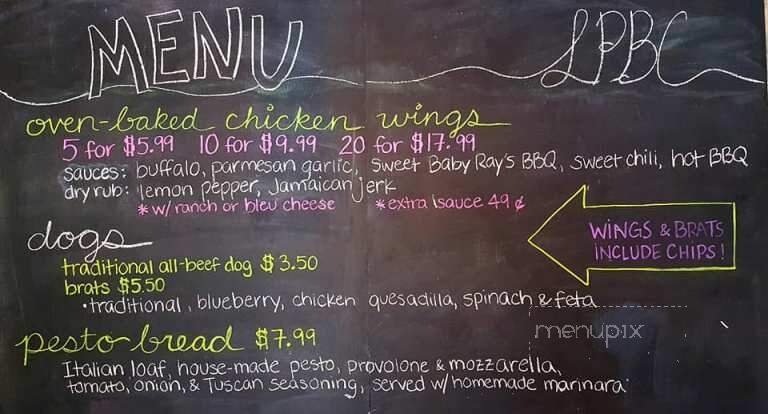 MENU
LPBC
oven-baked chicken wings
5 for $5.99 10 for $9.99 20 for $17.99
sauces: buffalo, parmesan garlic, Sweet Baby Ray's BBQ, sweet chili, hot BBQ
dry rub: lemon pepper, Jamaican jerk
*w/ ranch or bleu cheese *extra sauce 49 ¢
dogs
WINGS & BRATS
INCLUDE CHIPS!
traditional all-beef dog $3.50
brats $5.50
•traditional, blueberry, chicken quesadilla, spinach & feta
menupix
pesto bread $7.99
Italian loaf, house-made pesto, provolone & mozzarella,
tomato, onion, & Tuscan seasoning, served w/ homemade marinara